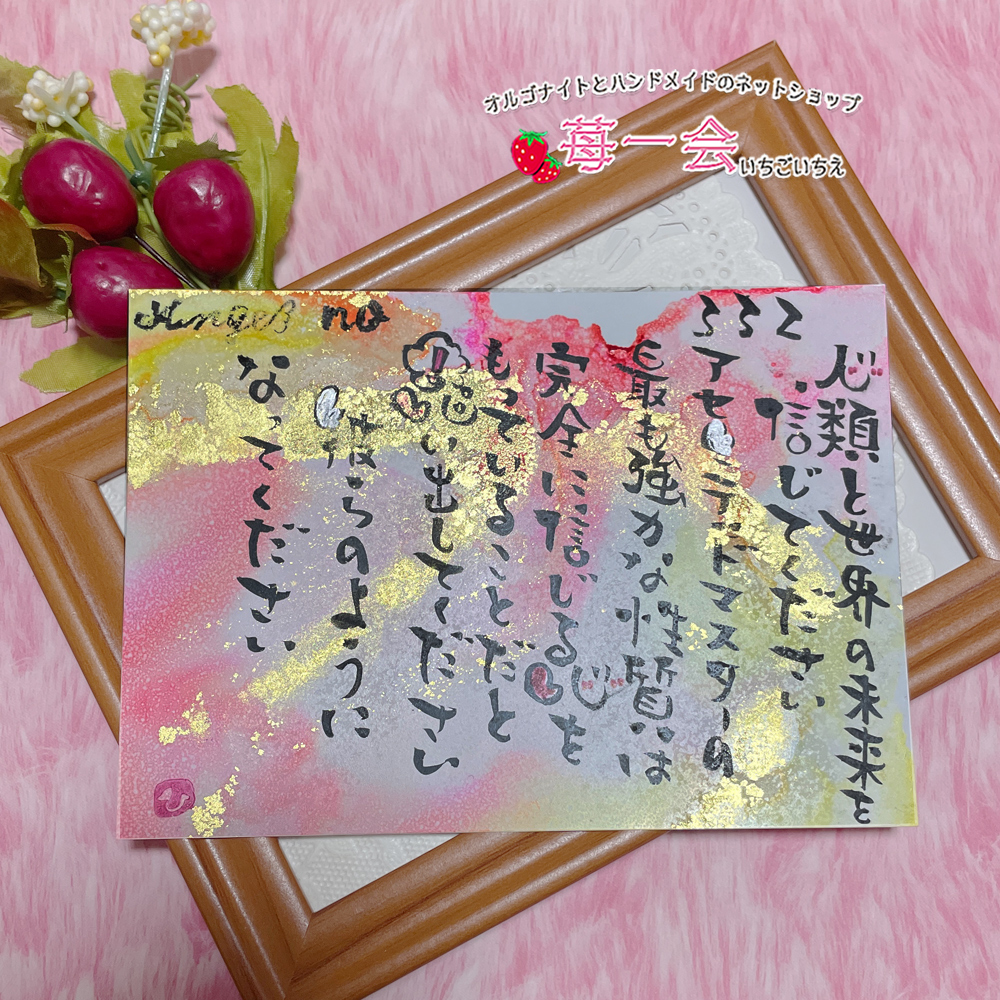 オルゴナイトとハンドメイドのネットショップ
苺一会
いちごいちえ
Angel no 332
人類と世界の未来を
信じてください
アセンデッドマスターの
最も強力な性質は
完全に信じる心を
もっていることだと
思い出してください
彼らのように
なってください